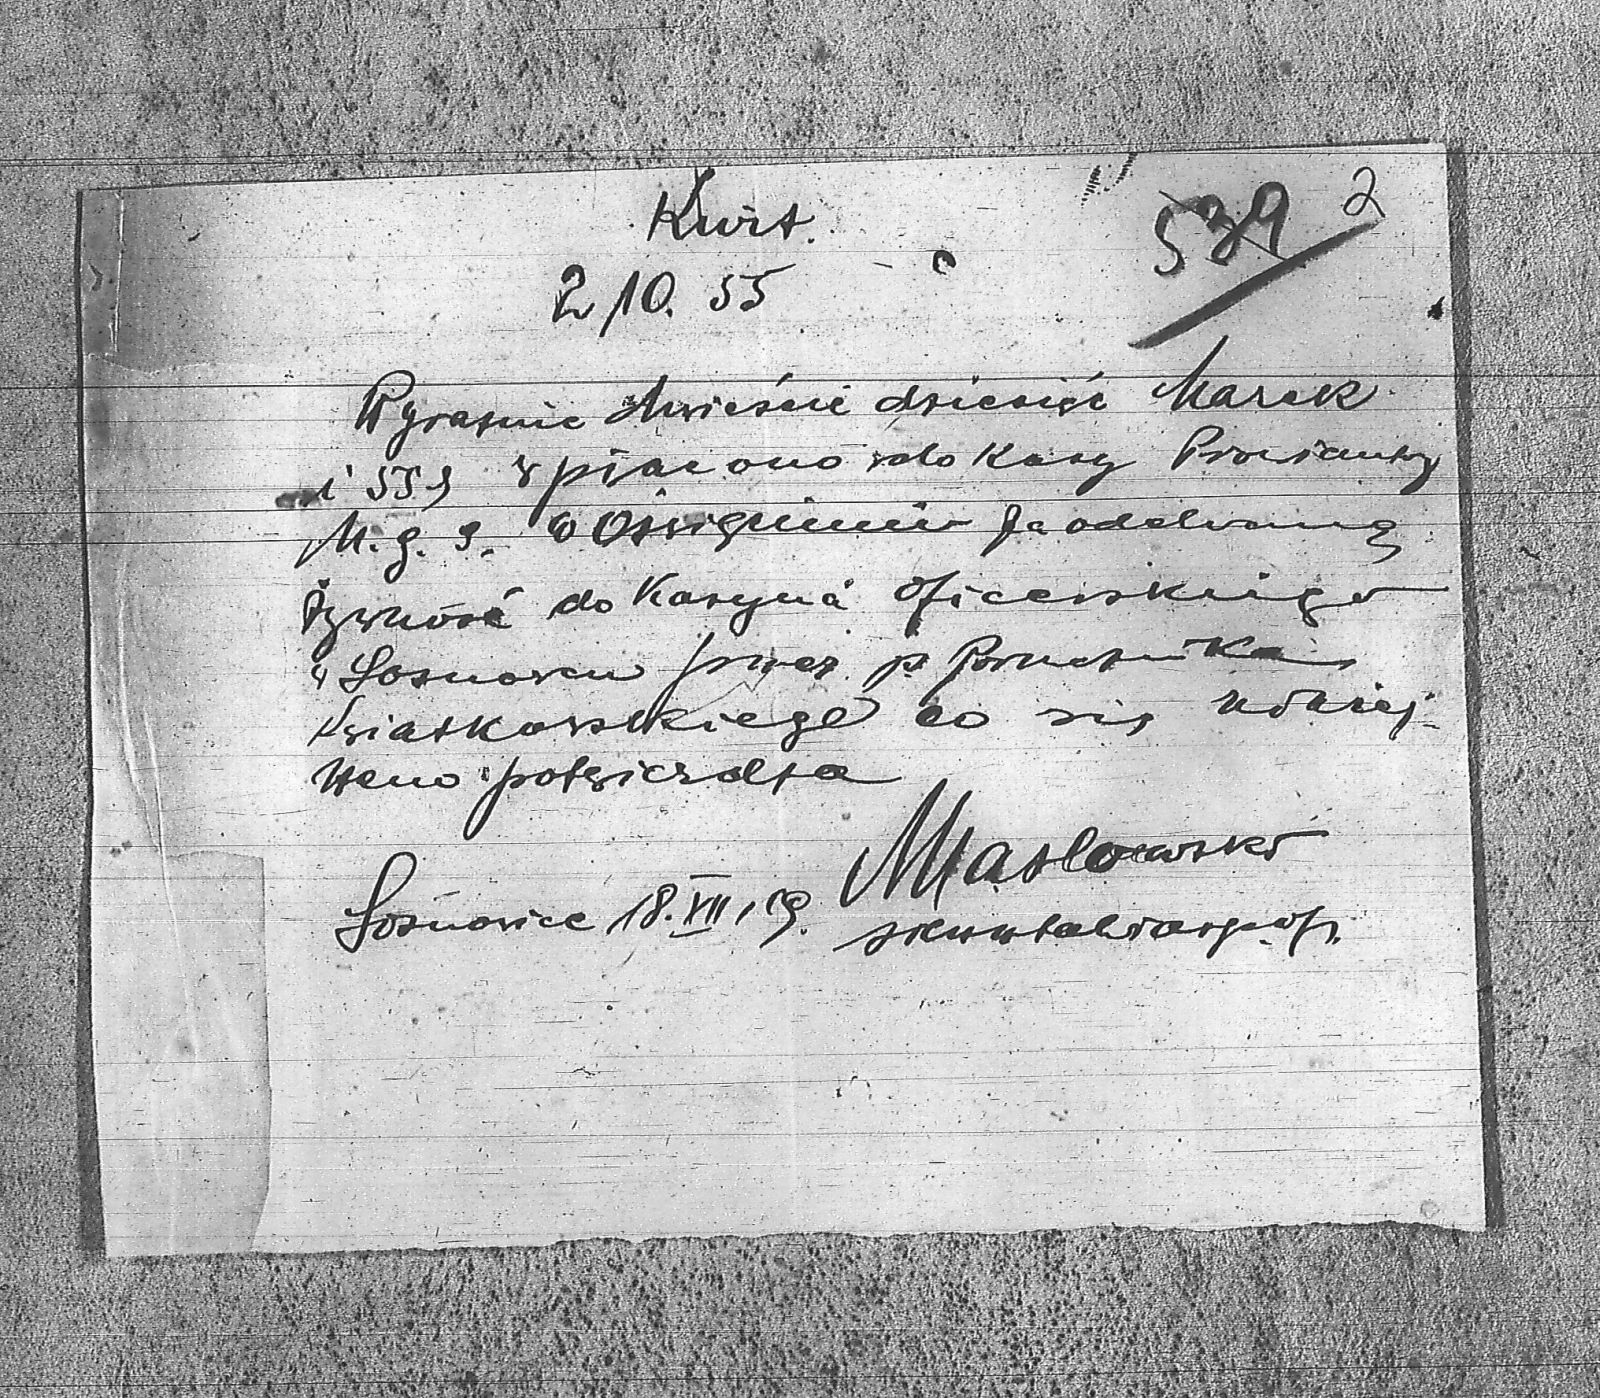 2
539
Kwit.
210. 55
Wyraźnie dwieście dziesięć Marek
i 55 wpłacono do Kasy Prowiantowej
M. g. s. w Oświęcimiu za odebraną
żywność do Kasyna oficerskiego
w Sosnowcu przez p. Porucznika
Kwiatkowskiego co się niniej-
szem potwierdza
Masłowski
Sosnowice 18. VII. 19.